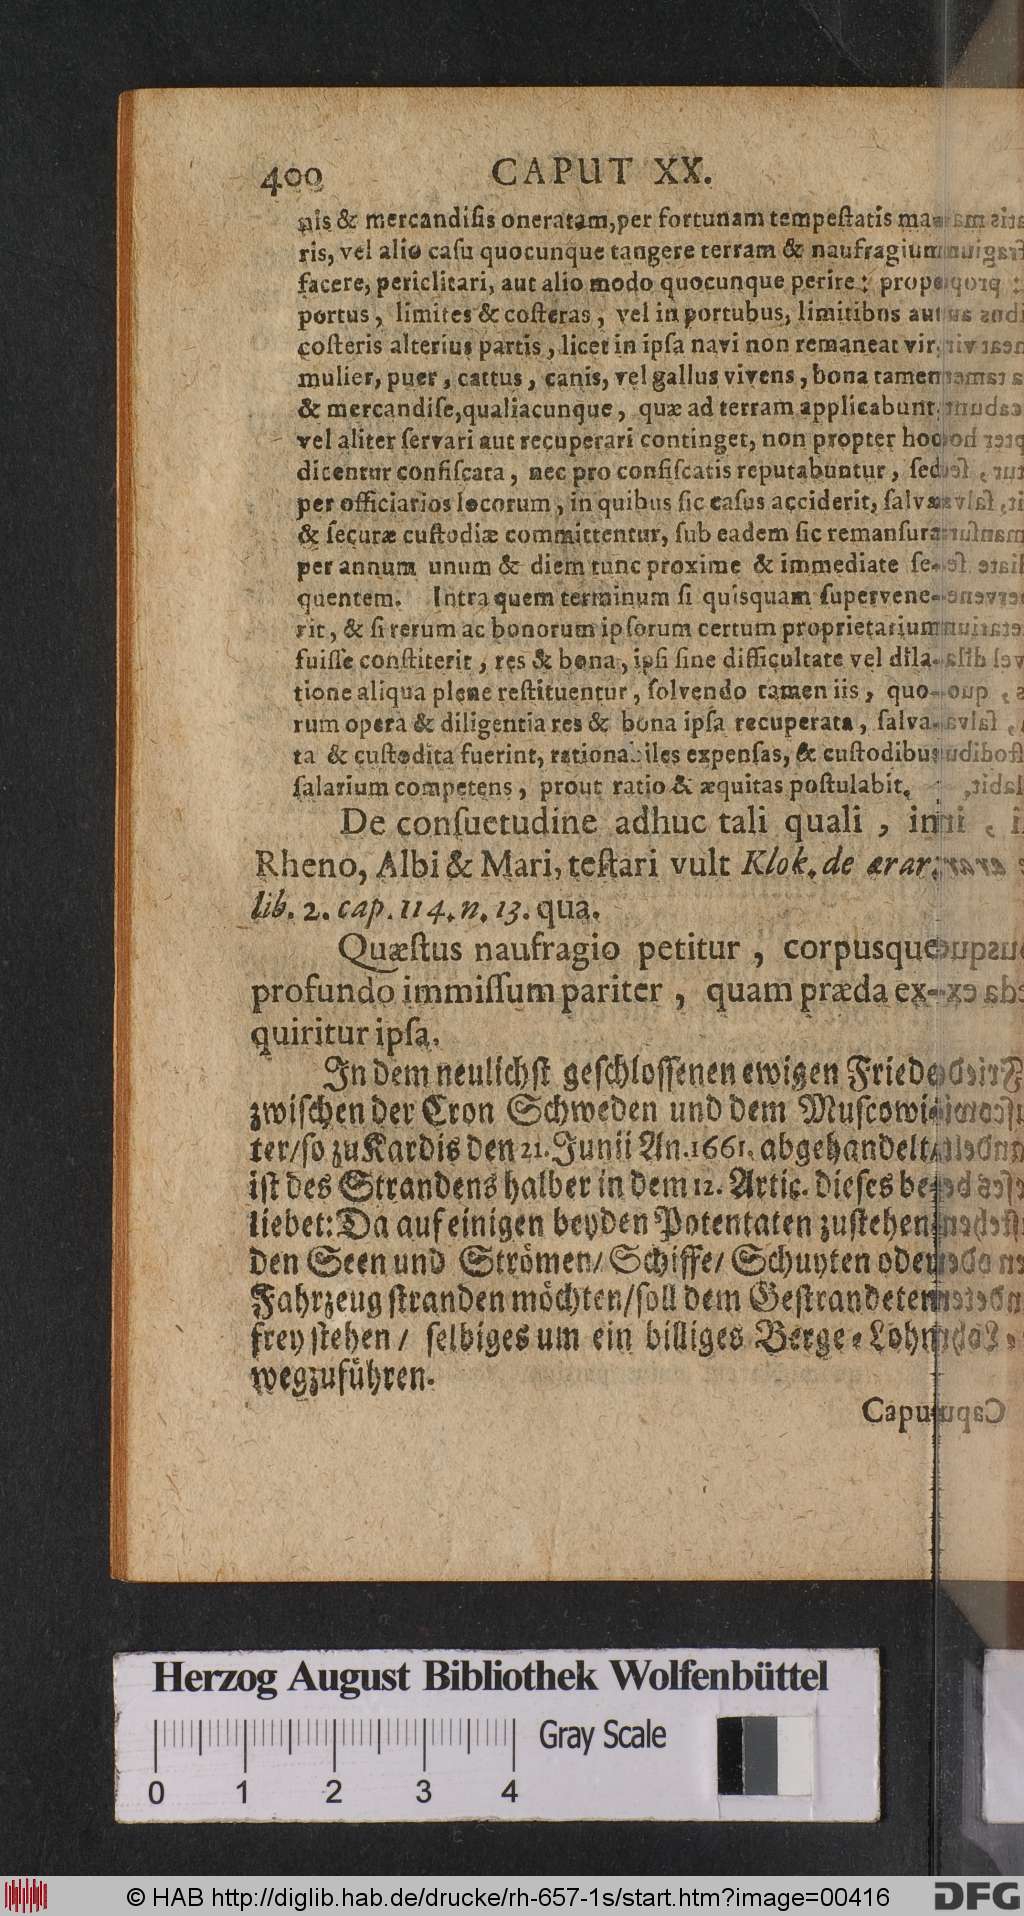 400 CAPUT XX.
nis & mercandisis oneratam, per fortunam tempeſtatis ma-
ris, vel alio caſu quocunque tangere terram & naufragium
facere, periclitari, aut alio modo quocunque perire: prope
portus, limites & coſteras, vel in portubus, limitibus aut
coſteris alterius partis, licet in ipſa navi non remaneat vir,
mulier, puer, cattus, canis, vel gallus vivens, bona tamen
& mercandiſe, qualiacunque, quæ ad terram applicabunt.
vel aliter ſervari aut recuperari continget, non propter hoc
dicentur confiſcata, nec pro confiſcatis reputabuntur, ſed
per officiarios locorum, in quibus ſic caſus acciderit, ſalvæ
& ſecuræ cuſtodiæ committentur, ſub eadem ſic remanſura
per annum unum & diem tunc proxime & immediate ſe-
quentem. Intra quem terminum ſi quisquam ſupervene-
rit, & ſi rerum ac bonorum ipſorum certum proprietarium
fuiſſe conſtiterit, res & bona, ipſi ſine difficultate vel dila-
tione aliqua plene reſtituentur, ſolvendo tamen iis, quo-
rum opera & diligentia res & bona ipſa recuperata, ſalva-
ta & cuſtodita fuerint, rationabiles expenſas, & cuſtodibus
ſalarium competens, prout ratio & æquitas poſtulabit.
De conſuetudine adhuc tali quali, in
Rheno, Albi & Mari, teſtari vult Klok. de ærar.
lib. 2. cap. 114. n. 13. qua.
Quæſtus naufragio petitur, corpusque
profundo immiſſum pariter, quam præda ex-
quiritur ipſa.
In dem neulichſt geſchloſſenen ewigen Friede
zwiſchen der Cron Schweden und dem Muſcowi-
ter/ ſo zu Kardis den 21. Junii An. 1661. abgehandelt/
iſt des Strandens halber in dem 12. Artic. dieſes be-
liebet: Da auf einigen beyden Potentaten zuſtehen-
den Seen und Strömen/ Schiffe/ Schuyten oder
Fahrzeug ſtranden möchten/ ſoll dem Geſtrandeten
frey ſtehen/ ſelbiges um ein billiges Berge-Lohn
wegzuführen.
Caput
Herzog August Bibliothek Wolfenbüttel
Gray Scale
0 1 2 3 4
© HAB http://diglib.hab.de/drucke/rh-657-1s/start.htm?image=00416
DFG